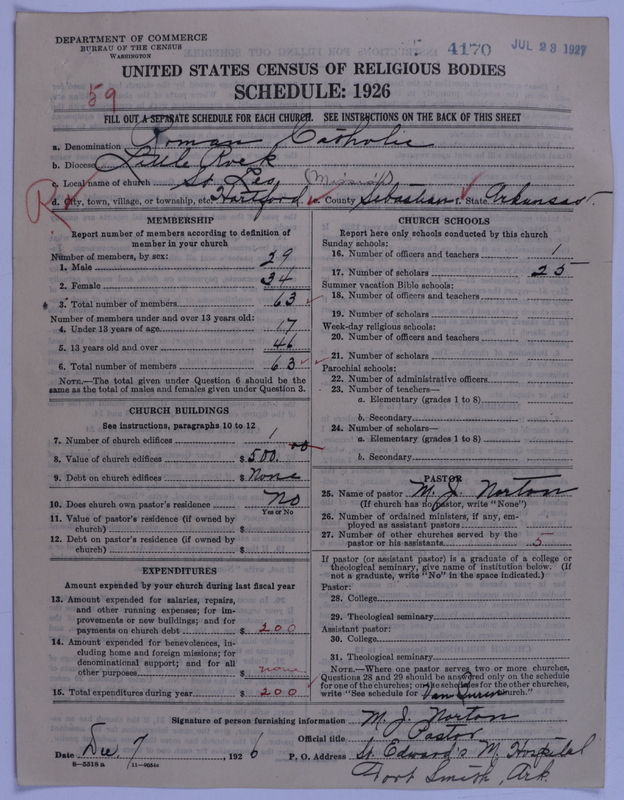 DEPARTMENT OF COMMERCE
BUREAU OF THE CENSUS
WASHINGTON
4170 JUL 29 1927
UNITED STATES CENSUS OF RELIGIOUS BODIES
SCHEDULE: 1926
59
FILL OUT A SEPARATE SCHEDULE FOR EACH CHURCH. SEE INSTRUCTIONS ON THE BACK OF THIS SHEET
a. Denomination Roman Catholic
b. Diocese Little Rock
c. Local name of church St. Leo (Mission)
d. City, town, village, or township, etc. Hartford e. County Sebastian f. State Arkansas
MEMBERSHIP
Report number of members according to definition of
member in your church
Number of members, by sex:
1. Male 29
2. Female 34
3. Total number of members 63
Number of members under and over 13 years old:
4. Under 13 years of age 17
5. 13 years old and over 46
6. Total number of members 63
NOTE.—The total given under Question 6 should be the
same as the total of males and females given under Question 3.
CHURCH BUILDINGS
See instructions, paragraphs 10 to 12
7. Number of church edifices 1
8. Value of church edifices $ 500.00
9. Debt on church edifices $ None
10. Does church own pastor's residence No
Yes or No
11. Value of pastor's residence (if owned by
church) $
12. Debt on pastor's residence (if owned by
church) $
EXPENDITURES
Amount expended by your church during last fiscal year
13. Amount expended for salaries, repairs,
and other running expenses; for im-
provements or new buildings; and for
payments on church debt $ 200
14. Amount expended for benevolences, in-
cluding home and foreign missions; for
denominational support; and for all
other purposes $ none
15. Total expenditures during year $ 200
CHURCH SCHOOLS
Report here only schools conducted by this church
Sunday schools:
16. Number of officers and teachers 1
17. Number of scholars 25
Summer vacation Bible schools:
18. Number of officers and teachers
19. Number of scholars
Week-day religious schools:
20. Number of officers and teachers
21. Number of scholars
Parochial schools:
22. Number of administrative officers
23. Number of teachers—
a. Elementary (grades 1 to 8)
b. Secondary
24. Number of scholars—
a. Elementary (grades 1 to 8)
b. Secondary
PASTOR
25. Name of pastor M. J. Norton
(If church has no pastor, write "None")
26. Number of ordained ministers, if any, em-
ployed as assistant pastors
27. Number of other churches served by the
pastor or his assistants 5
If pastor (or assistant pastor) is a graduate of a college or
theological seminary, give name of institution below. (If
not a graduate, write "No" in the space indicated.)
Pastor:
28. College
29. Theological seminary
Assistant pastor:
30. College
31. Theological seminary
NOTE.—Where one pastor serves two or more churches,
Questions 28 and 29 should be answered only on the schedule
for one of the churches; on the schedules for the other churches,
write "See schedule for Van Buren church."
Signature of person furnishing information M. J. Norton
Official title Pastor
Date Dec. 7, 1926 P. O. Address St. Edward's M. Hospital
8—5518 a
Fort Smith, Ark.